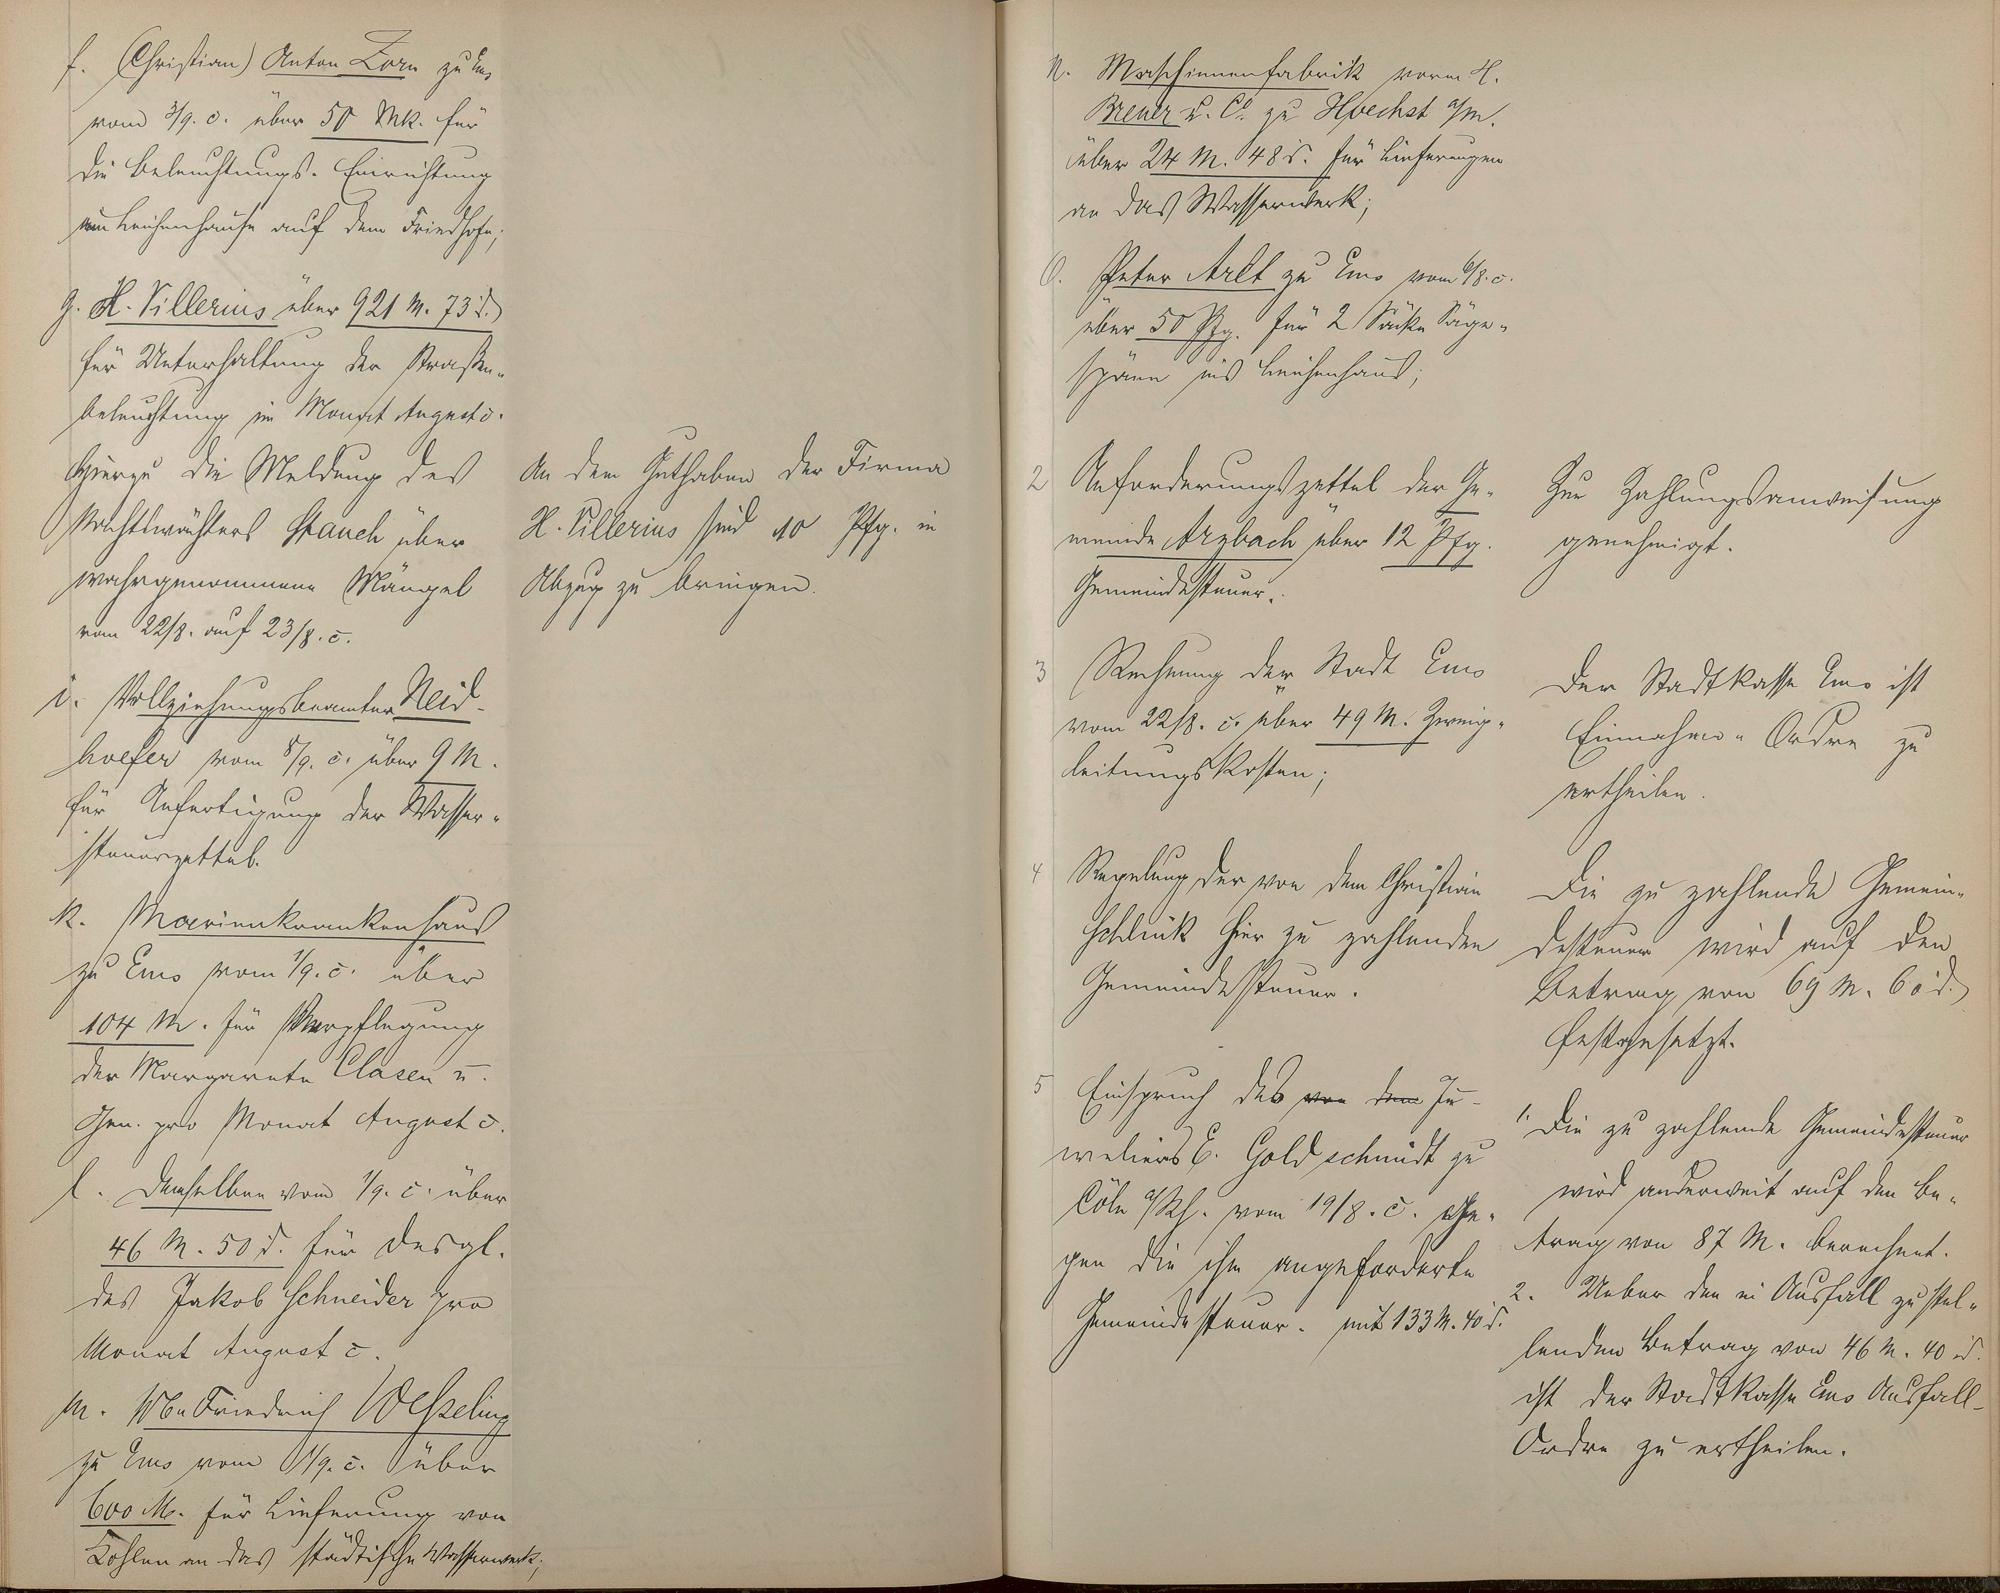 f. (Christian) Anton Zorn zu Ems
vom 3/9. c. über 50 Mk. für
die Beleuchtungs-Einrichtung
im Leichenhause auf dem Friedhofe;
g. H. Villerius über 921 M. 73 d.
für Unterhaltung der Straßen-
beleuchtung im Monat August c.
Hierzu die Meldung des
Nachtswächters Stauch über
wahrgenommene Mängel
vom 22/8. auf 23/8. c.
An dem Guthaben der Firma
H. Villerius sind 40 Pfg. in
Abzug zu bringen.
i. Vollziehungsbeamter Neid-
hoefer vom 8/9. c. über 9 M.
für Anfertigung der Wasser-
steuerzettel.
k. Marienkrankenhaus
zu Ems vom 1/9. c. über
104 M. für Verpflegung
der Margarete Clasen u.
Gen. pro Monat August c.
l. Demselben vom 1/9. c. über
46 M. 50 d. für desgl.
des Jakob Schneider pro
Monat August c.
m. Friedrich Weßeling
zu Ems vom 1/9. c. über
600 M. für Lieferung von
Kohlen an das städtische Wasserwerk;
n. Maschinenfabrik vorm H.
Breuer u. Co. zu Hoechst a/M.
über 24 M. 48 d. für Lieferungen
an das Wasserwerk;
o. Peter Arlt zu Ems vom 6/8. c.
über 50 Pfg. für 2 Säcke Säge-
späne ins Leichenhaus;
2 Anforderungszettel der Ge-
meinde Arzbach über 12 Pfg.
Gemeindesteuer.
Zur Zahlungsanweisung
genehmigt.
3 Rechnung der Stadt Ems
vom 22/8. c. über 49 M. Zweig-
leitungskosten;
Der Stadtkasse Ems ist
Einnahme-Ordre zu
ertheilen.
4 Regelung der von dem Christian
Schlink hier zu zahlenden
Gemeindesteuer.
Die zu zahlende Gemein-
desteuer wird auf den
Betrag von 69 M. 60 d.
festgesetzt.
5 Einspruch des von dem Ju-
weliers E. Goldschmidt zu
Cöln a/Rh. vom 19/8. c. ge-
gen die ihm angeforderte
Gemeindesteuer. mit 133 M. 40 d.
1. Die zu zahlende Gemeindesteuer
wird anderweit auf den Be-
trag von 87 M. berechnet.
2. Ueber den in Ausfall zu stel-
lenden Betrag von 46 M. 40 d.
ist der Stadtkasse Ems Ausfall-
Ordre zu ertheilen.